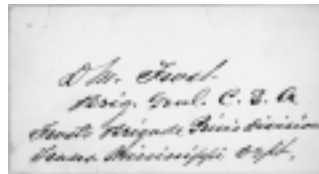 D M. Frost.
Brig. Genl. C. S. A
Frosts Brigade Price's division
Trans. Mississippi Dept.